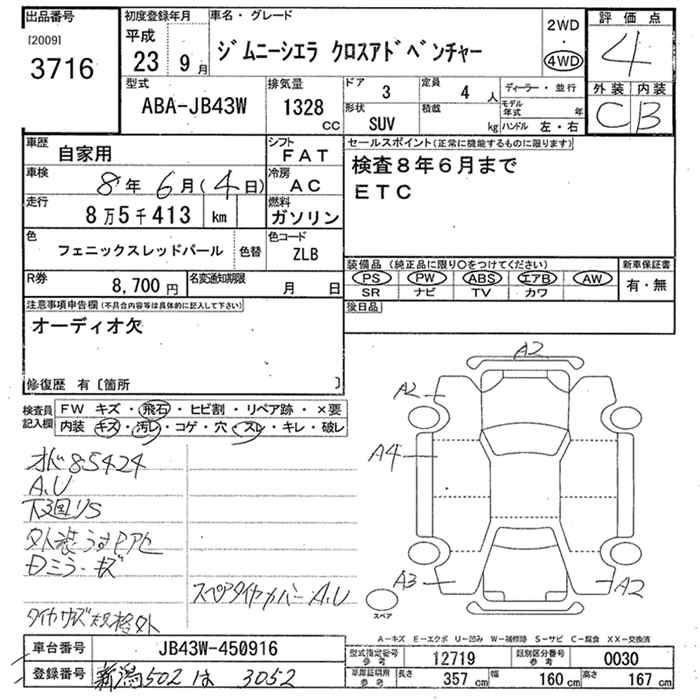 出品番号
[2009]
3716
初度登録年月
平成
23 9月
車名・グレード
ジムニーシエラ クロスアドベンチャー
2WD
・
4WD
評価点
4
外装 内装
C B
型式
ABA-JB43W
排気量
1328
CC
ドア 3
定員 4 人
形状
SUV
積載
kg
ディーラー・並行
モデル年式 年
ハンドル 左・右
車歴
自家用
シフト
FAT
車検
8年 6月(4日)
冷房
AC
走行
8万5千413 km
燃料
ガソリン
色
フェニックスレッドパール
色替
色コード
ZLB
R券
8,700 円
名変通知期限
月 日
セールスポイント(正常に機能するものに限ります)
検査8年6月まで
ETC
装備品 (純正品に限り○をつけてください)
PS PW ABS エアB AW
SR ナビ TV カワ
新車保証書
有・無
後日品
注意事項申告欄(不具合内容等は具体的に記入して下さい)
オーディオ欠
修復歴 有〔箇所 〕
検査員
記入欄
FW キズ・飛石・ヒビ割・リペア跡・×要
内装 キズ・汚レ・コゲ・穴・スレ・キレ・破レ
85424
A.U
下廻りS
外装
ドミラーキズ
タイヤサイズ規格外
スペアタイヤカバーA.U
A2
A2
A4
A3
A2
スペア
A−キズ E−エクボ U−凹み W−補修跡 S−サビ C−腐食 XX−交換済
車台番号
JB43W-450916
登録番号
新潟502 は 3052
型式指定番号
参考
12719
類別区分番号
参考
0030
車庫証明用
参考
長さ
357 cm
幅
160 cm
高さ
167 cm